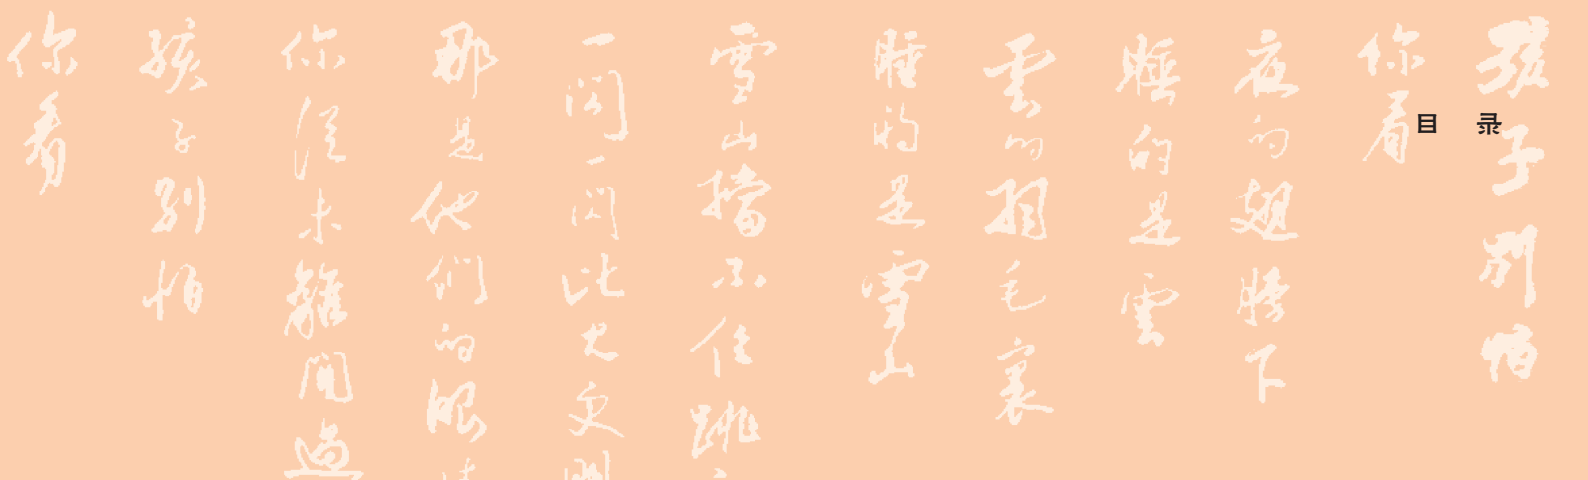 目录
孩子別怕
你看
夜的翅膀下
睡的是雲
雲的羽毛裏
睡的是雪山
雪山擋不住跳
一閃一閃比火更
那是他們的眼
你從未離開過
孩子別怕
你看